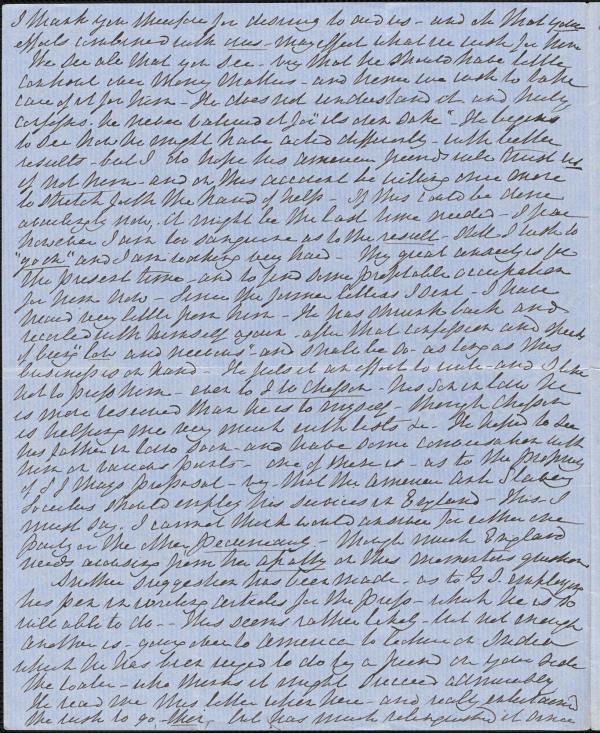 I thank you therefore for desiring to aid us - and oh that your
efforts combined with ours - may effect what we wish for him
He see all that you see - viz that he should have little
control over Money Matters - and hence we wish to take
care of it for him - He does not understand it and truly
confesses he never valued it for "its own sake" - He begins
to see how he might have acted differently - with better
results - but I do hope his American friends will trust us
if not him - and on this account be willing once more
to stretch forth the hand of help - If this could be done
now, it might be the last time needed - I fear
however I am too sanguine as to the result - Still I wish to
"go on" and I am working very hard - My great anxiety is for
the present time - and to find some profitable occupation
for him now - Since the former letters I sent - I have
heard very little from him - He has shrunk back and
himself again - after that confession and
of being "low and nervous" - and shall be so as long as this
business is on hand - He feels it an effort to write - and I like
not to press him - even to his Son in law he
is more reserved than he is to myself - though
is helping me very much with lists &c - He hoped to see
his father in law soon - and have some conversation with
him on various points - one of these is - as to the propriety
of S J Mays proposal - viz - that the American Anti Slavery
Societies should employ his services in England - This I
must say, I cannot think would answer for either one
Party or the other Pecuniarily - though much England
needs arousing from her apathy on this momentous question
Another suggestion has been made - as to G T. employing
his pen in writing articles for the Press - which he is so
well able to do - - This seems rather likely - but not enough
another is - going over to America to lecture on India
which he has been urged to do by a friend on your side
the water - who thinks it might succeed admirably
He read me this letter when here - and really entertained
the wish to go, then, but has much relinquished it since